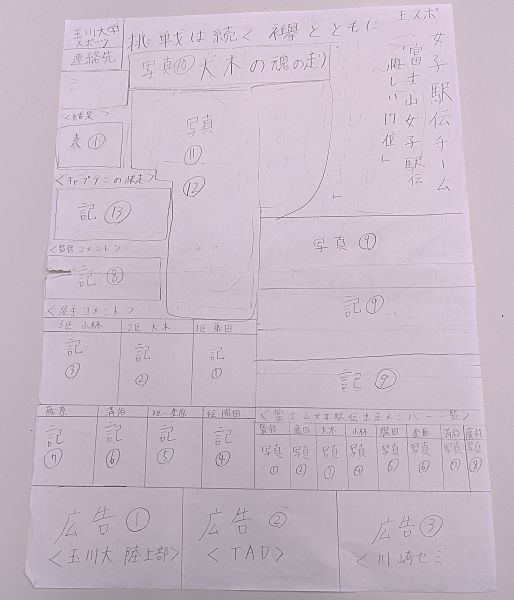 玉川大学
スポーツ
連絡先
挑戦は続く 襷とともに
玉スポ
女子駅伝チーム
富士山女子駅伝
「悔しい17位」
写真⑩大木の魂の走り
写真
⑪
⑫
<結果>
表①
<キャプテンの快走>
記⑬
<監督コメント>
記⑧
<選手コメント>
3区 小林
記
③
2区 大木
記
②
1区 藤田
記
①
写真⑨
記⑨
記⑨
藤原
記
⑦
清谷
記
⑥
記
⑤
記
④
<富士山女子駅伝出走メンバー一覧>
監督
写真
①
藤田
写真
②
大木
写真
③
小林
写真
④
写真
⑤
写真
⑥
清谷
写真
⑦
写真
⑧
広告①
<玉川大 陸上部>
広告②
<TAD>
広告③
<川崎ゼミ